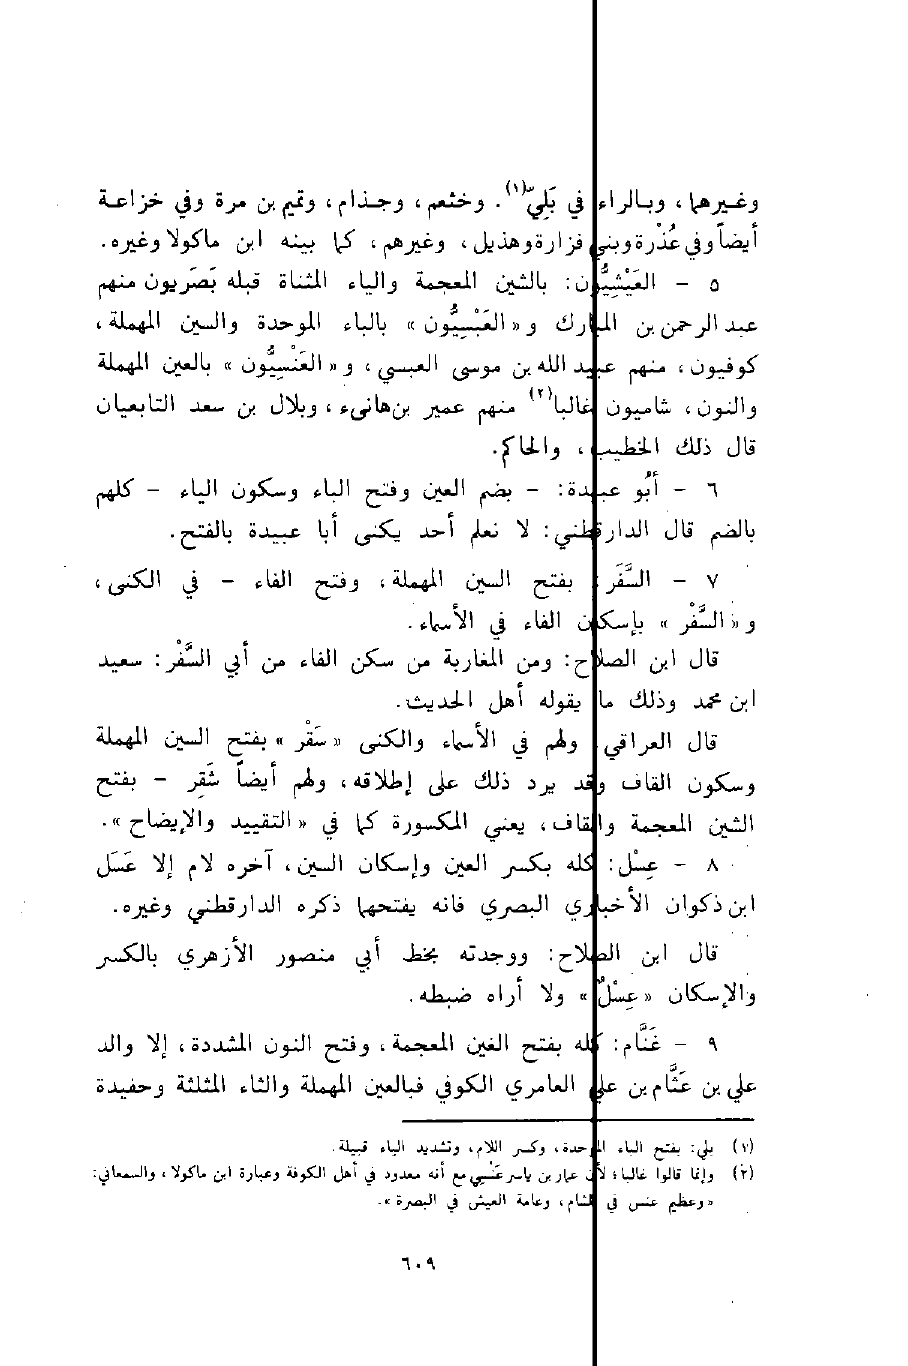 وغيرهما، وبالراء في بَلِيّ(١). وخثعم، وجذام، وتميم بن مرة وفي خزاعة
أيضاً وفي عُذْرة وبني فزارة وهذيل، وغيرهم، كما بينه ابن ماكولا وغيره.
٥ - العَيْشِيُّون: بالشين المعجمة والياء المثناة قبله بَصَريون منهم
عبد الرحمن بن المبارك و« العَبْسِيُّون » بالباء الموحدة والسين المهملة،
كوفيون، منهم عبيد الله بن موسى العبسي، و« العَنْسِيُّون » بالعين المهملة
والنون، شاميون غالبا(٢) منهم عمير بن هانىء، وبلال بن سعد التابعيان
قال ذلك الخطيب، والحاكم.
٦ - أبُو عبيدة: - بضم العين وفتح الباء وسكون الياء - كلهم
بالضم قال الدارقطني: لا نعلم أحد يكنى أبا عبيدة بالفتح.
٧ - السَّفَر: بفتح السين المهملة، وفتح الفاء - في الكنى،
و« السَّفْر » بإسكان الفاء في الأسماء.
قال ابن الصلاح: ومن المغاربة من سكن الفاء من أبي السَّفْر: سعيد
ابن محمد وذلك ما يقوله أهل الحديث.
قال العراقي: ولهم في الأسماء والكنى « سَقْر » بفتح السين المهملة
وسكون القاف وقد يرد ذلك على إطلاقه، ولهم أيضاً شَقِر - بفتح
الشين المعجمة والقاف، يعني المكسورة كما في « التقييد والإيضاح ».
٨ - عِسْل: كله بكسر العين وإسكان السين، آخره لام إلا عَسَل
ابن ذكوان الأخباري البصري فانه يفتحها ذكره الدارقطني وغيره.
قال ابن الصلاح: ووجدته بخط أبي منصور الأزهري بالكسر
والإسكان « عِسْلٌ » ولا أراه ضبطه.
٩ - غَنَّام: كله بفتح الغين المعجمة، وفتح النون المشددة، إلا والد
علي بن عَثَّام بن علي العامري الكوفي فبالعين المهملة والثاء المثلثة وحفيدة
(١) بلي: بفتح الباء الموحدة، وكسر اللام، وتشديد الياء قبيلة.
(٢) وإنما قالوا غالبا؛ لأن عمار بن ياسر عَنْسِي مع أنه معدود في أهل الكوفة وعبارة ابن ماكولا، والسمعاني:
« وعظيم عنس في الشام، وعامة العيش في البصرة ».
٦٠٩